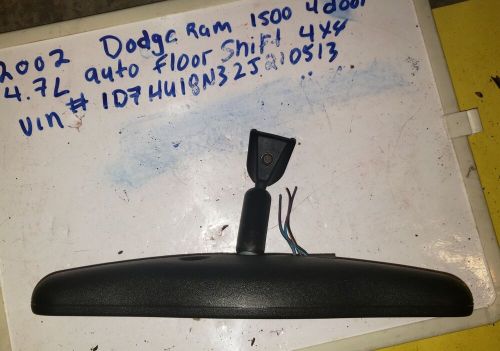 2002 Dodge Ram 1500 4door
4.7L auto Floor Shift 4x4
vin # 1D7HU18N32J210513